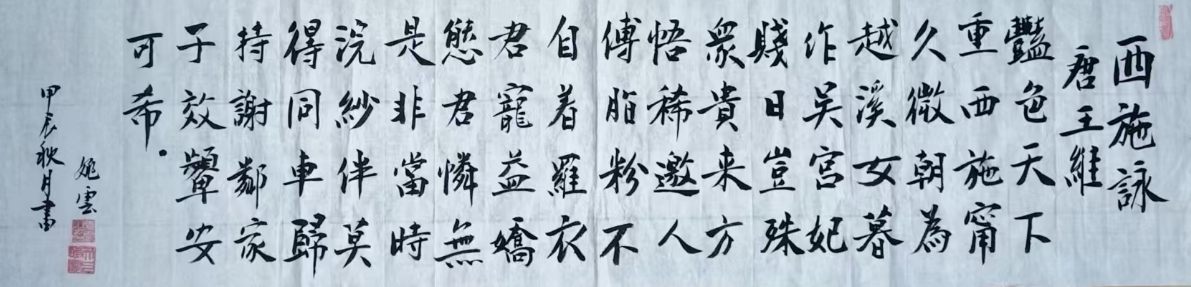 西施詠
唐王維
豔色天下
重西施甯
久微朝為
越溪女暮
作吴宫妃
賤日豈殊
衆貴来方
悟稀邀人
傅脂粉不
自着羅衣
君寵益嬌
態君憐無
是非當時
浣紗伴莫
得同車歸
持謝鄰家
子效顰安
可希。
姚雲
甲辰秋月書